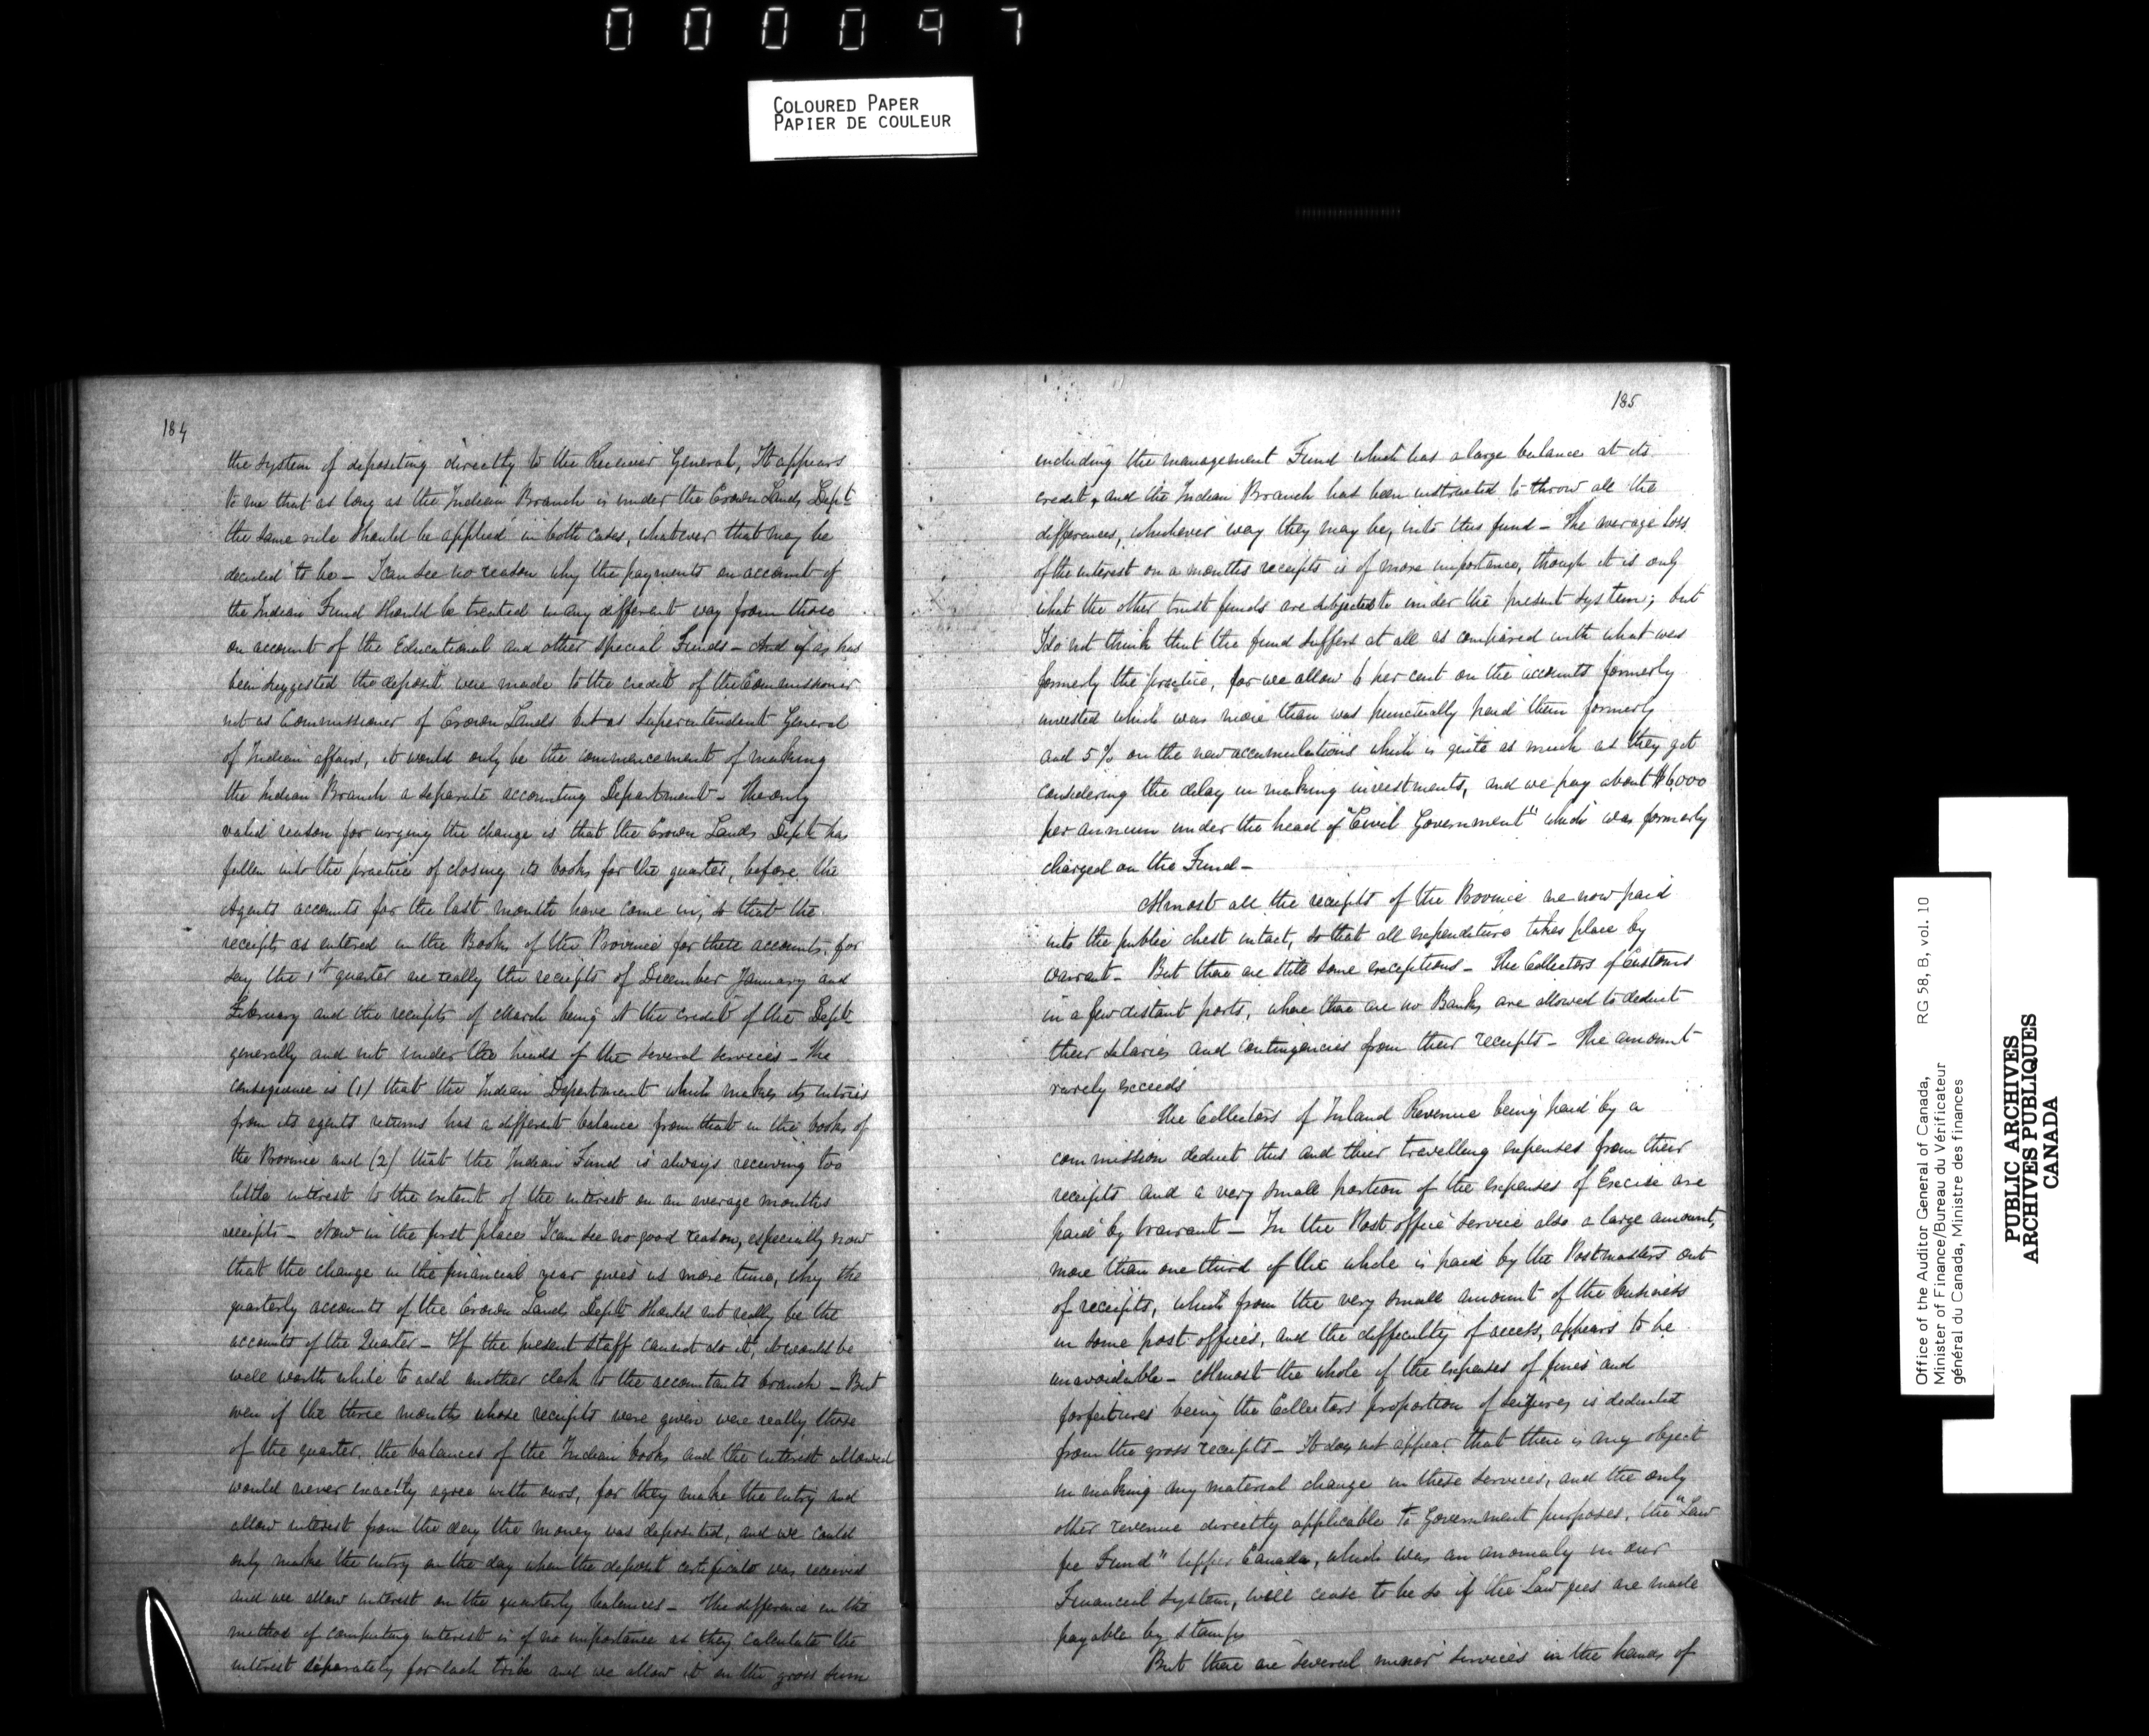 000097
COLOURED PAPER
PAPIER DE COULEUR
184
the system of depositing directly to the Receiver General, It appears
to me that as long as the Indian Branch is under the Crown Lands Dept
the same rule should be applied in both cases, whatever that may be
decided to be – I can see no reason why the payments on account of
the Indian Fund should be treated in any different way from those
on account of the Educational and other special Funds – And if as has
been suggested the deposit were made to the credit of the Commissioner
not as Commissioner of Crown Lands but as Superintendent General
of Indian affairs, it would only be the commencement of making
the Indian Branch a separate accounting Department – The only
valid reason for urging the change is that the Crown Lands Dept has
fallen into the practice of closing its books for the quarter, before the
Agents accounts for the last month have come in, so that the
receipts as entered in the Books of the Province for these accounts, for
say the 1st quarter are really the receipts of December January and
February and the receipts of March being at the credit of the Dept
generally and not under the heads of the several services – The
consequence is (1) that the Indian Department which makes its entries
from its agents returns has a different balance from that in the books of
the Province and (2) that the Indian Fund is always receiving too
little interest to the extent of the interest on an average months
receipts – Now in the first place I can see no good reason, especially now
that the change in the financial year gives us more time, why the
quarterly accounts of the Crown Lands Dept should not really be the
accounts of the Quarter – If the present staff cannot do it, it would be
well worth while to add another clerk to the accountants branch – But
even if the three months whose receipts were given were really those
of the quarter, the balances of the Indian books and the interest allowed
would never exactly agree with ours, for they make the entry and
allow interest from the day the money was deposited, and we could
only make the entry on the day when the deposit certificate was received
and we allow interest on the quarterly balances – The difference in the
method of computing interest is of no importance as they calculate the
interest separately for each tribe and we allow it on the gross sum
185
including the management Fund which has a large balance at its
credit, and the Indian Branch has been instructed to throw all the
differences, whichever way they may be, into this fund – The average loss
of the interest on a months receipts is of more importance, though it is only
what the other trust funds are subjected to under the present system; but
I do not think that the fund suffers at all as compared with what was
formerly the practice, for we allow 6 per cent on the accounts formerly
invested which was more than was punctually paid them formerly
and 5% on the new accumulations which is quite as much as they got
considering the delay in making investments, and we pay about $6,000
per annum under the head of "Civil Government" which was formerly
charged on the Fund –
Almost all the receipts of the Province are now paid
into the public chest intact, so that all expenditure takes place by
warrant – But there are still some exceptions – The Collectors of Customs
in a few distant ports, where there are no Banks are allowed to deduct
their salaries and contingencies from their receipts – The amount
rarely exceeds
The Collectors of Inland Revenue being paid by a
commission deduct this and their travelling expenses from their
receipts and a very small portion of the expenses of Excise are
paid by Warrant – In the Post office service also a large amount,
more than one third of the whole is paid by the Postmasters out
of receipts, which from the very small amount of the business
in some post offices, and the difficulty of access, appears to be
unavoidable – Almost the whole of the expenses of fines and
forfeitures being the Collectors proportion of seizures is deducted
from the gross receipts – It does not appear that there is any object
in making any material change in these services, and the only
other revenue directly applicable to Government purposes, the "Law
fee Fund" Upper Canada, which was an anomaly in our
Financial system, will cease to be so if the Law fees are made
payable by stamps
But there are several minor services in the hands of
Office of the Auditor General of Canada, RG 58, B, vol. 10
Minister of Finance/Bureau du Vérificateur
général du Canada, Ministre des finances
PUBLIC ARCHIVES
ARCHIVES PUBLIQUES
CANADA